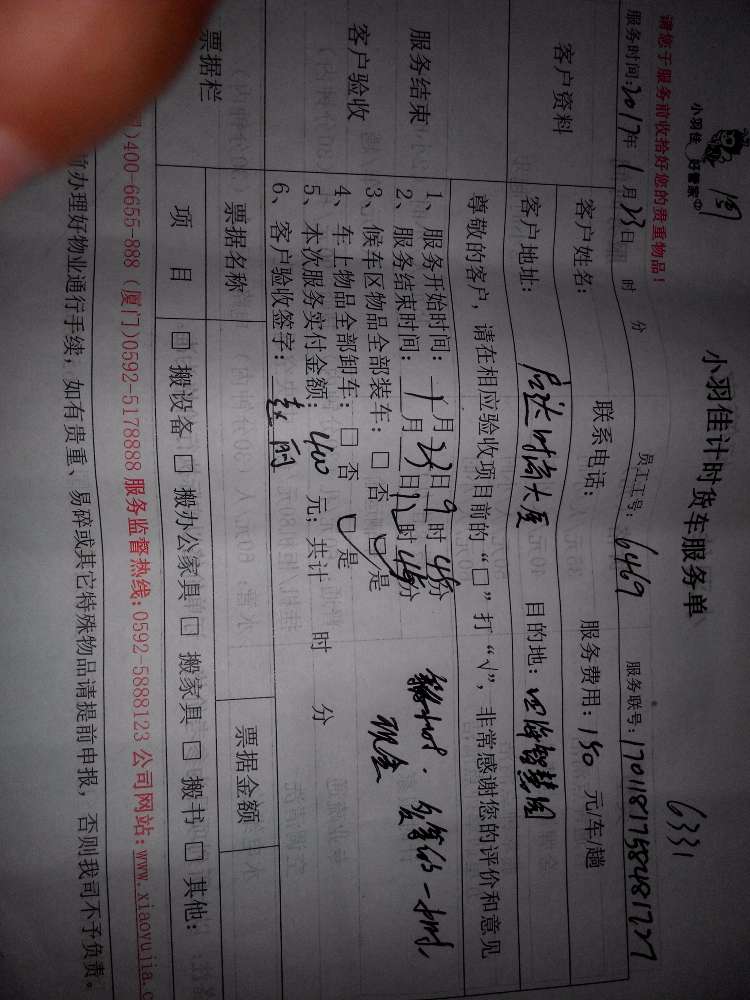 小羽佳 好管家
小羽佳计时货车服务单
6331
请您于服务前收拾好您的贵重物品！
服务时间:2017年1月23日 时 分 员工工号: 6469 服务联号:
客户资料
客户姓名: 联系电话: 服务费用: 150 元/车/趟
客户地址: 时尚大厦 目的地:
尊敬的客户，请在相应验收项目前的“□”打“√”，非常感谢您的评价和意见
服务结束
客户验收
1、服务开始时间: 1月23日9时45分
2、服务结束时间: 1月23日12时45分
3、候车区物品全部装车: □ 否 □ 是
4、车上物品全部卸车: □ 否 □ 是
5、本次服务实付金额: 400 元; 共计 时 分
6、客户验收签字:
现金
票据栏
票据名称 票据金额
项 目 □ 搬设备 □ 搬办公家具 □ 搬家具 □ 搬书 □ 其他:
)400-6655-888 (厦门)0592-5178888 服务监督热线:0592-5888123 公司网站:www.xiaoyujia.c
前办理好物业通行手续，如有贵重、易碎或其它特殊物品请提前申报，否则我司不予负责。